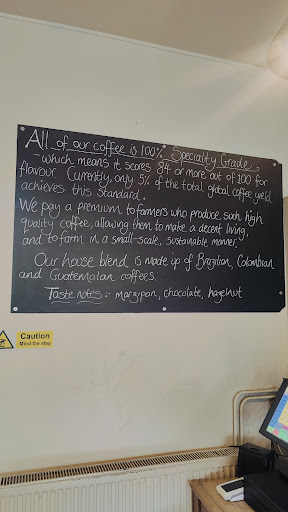 All of our coffee is 100% Speciality Grade,
- which means it scores 84 or more out of 100 for
flavour. Currently, only 5% of the total global coffee yield
achieves this standard.
We pay a premium to farmers who produce such high
quality coffee, allowing them to make a decent living,
and to farm in a small-scale, sustainable manner.
Our house blend is made up of Brazilian, Colombian
and Guatemalan coffees.
Taste notes :- marzipan, chocolate, hazelnut
Caution
Mind the step